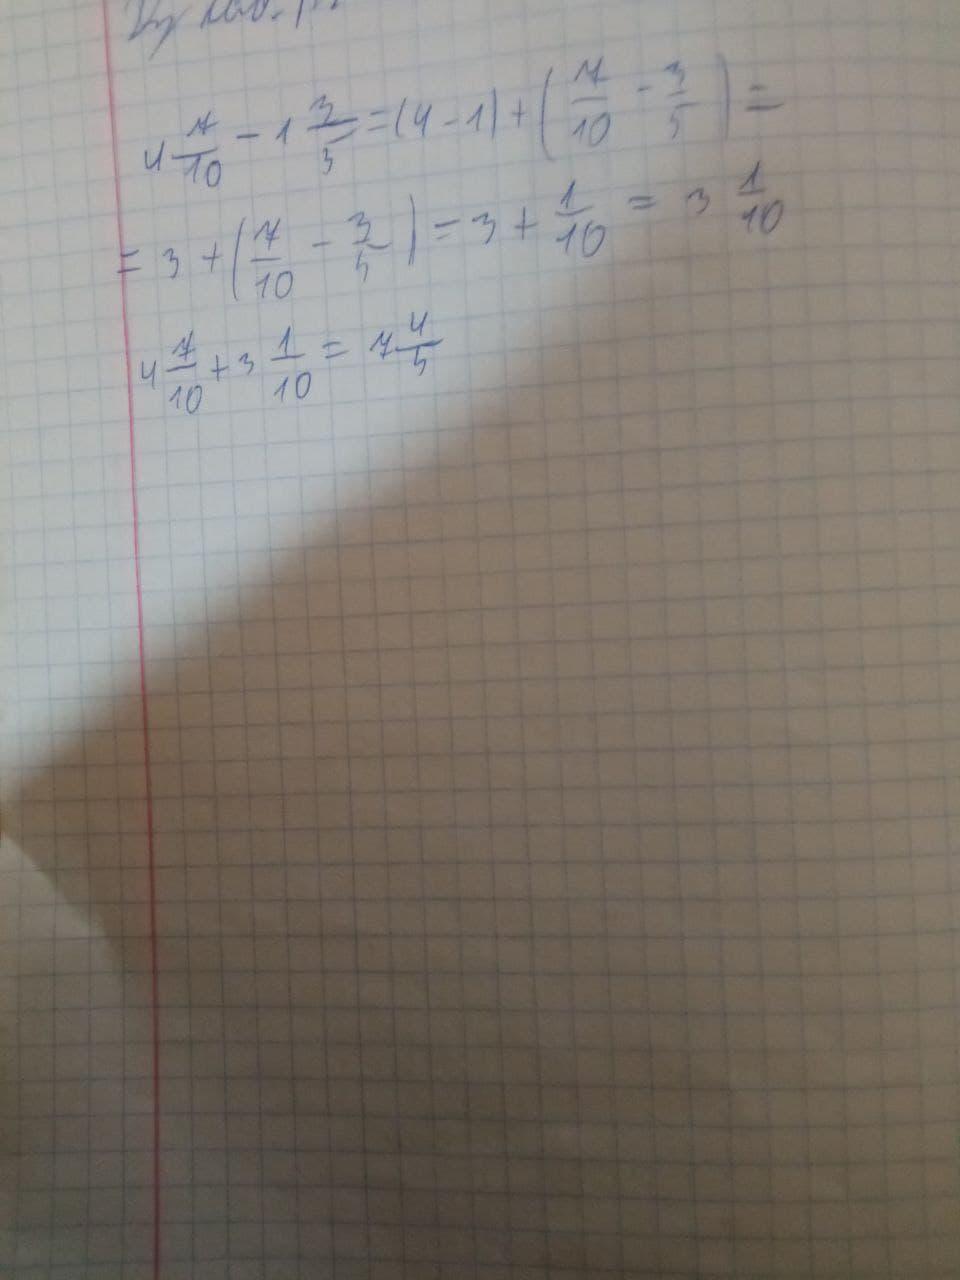 4 7/10 - 1 3/5 = (4 - 1) + (7/10 - 3/5) =
= 3 + (7/10 - 3/5) = 3 + 1/10 = 3 1/10
4 7/10 + 3 1/10 = 7 4/5